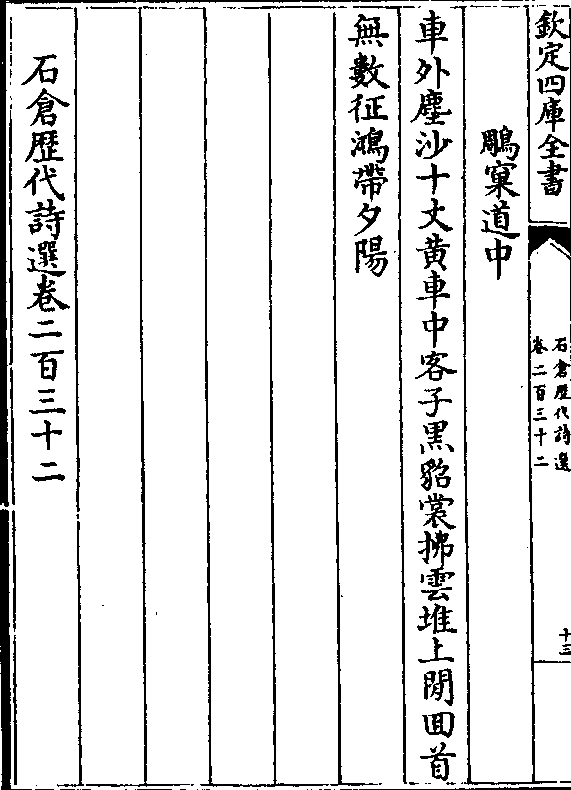 欽定四庫全書
石倉歴代詩選
卷二百三十二
十三
鵰窠道中
車外塵沙十丈黄車中客子黒貂裳拂雲堆上閒囬首
無數征鴻帶夕陽
石倉歴代詩選卷二百三十二